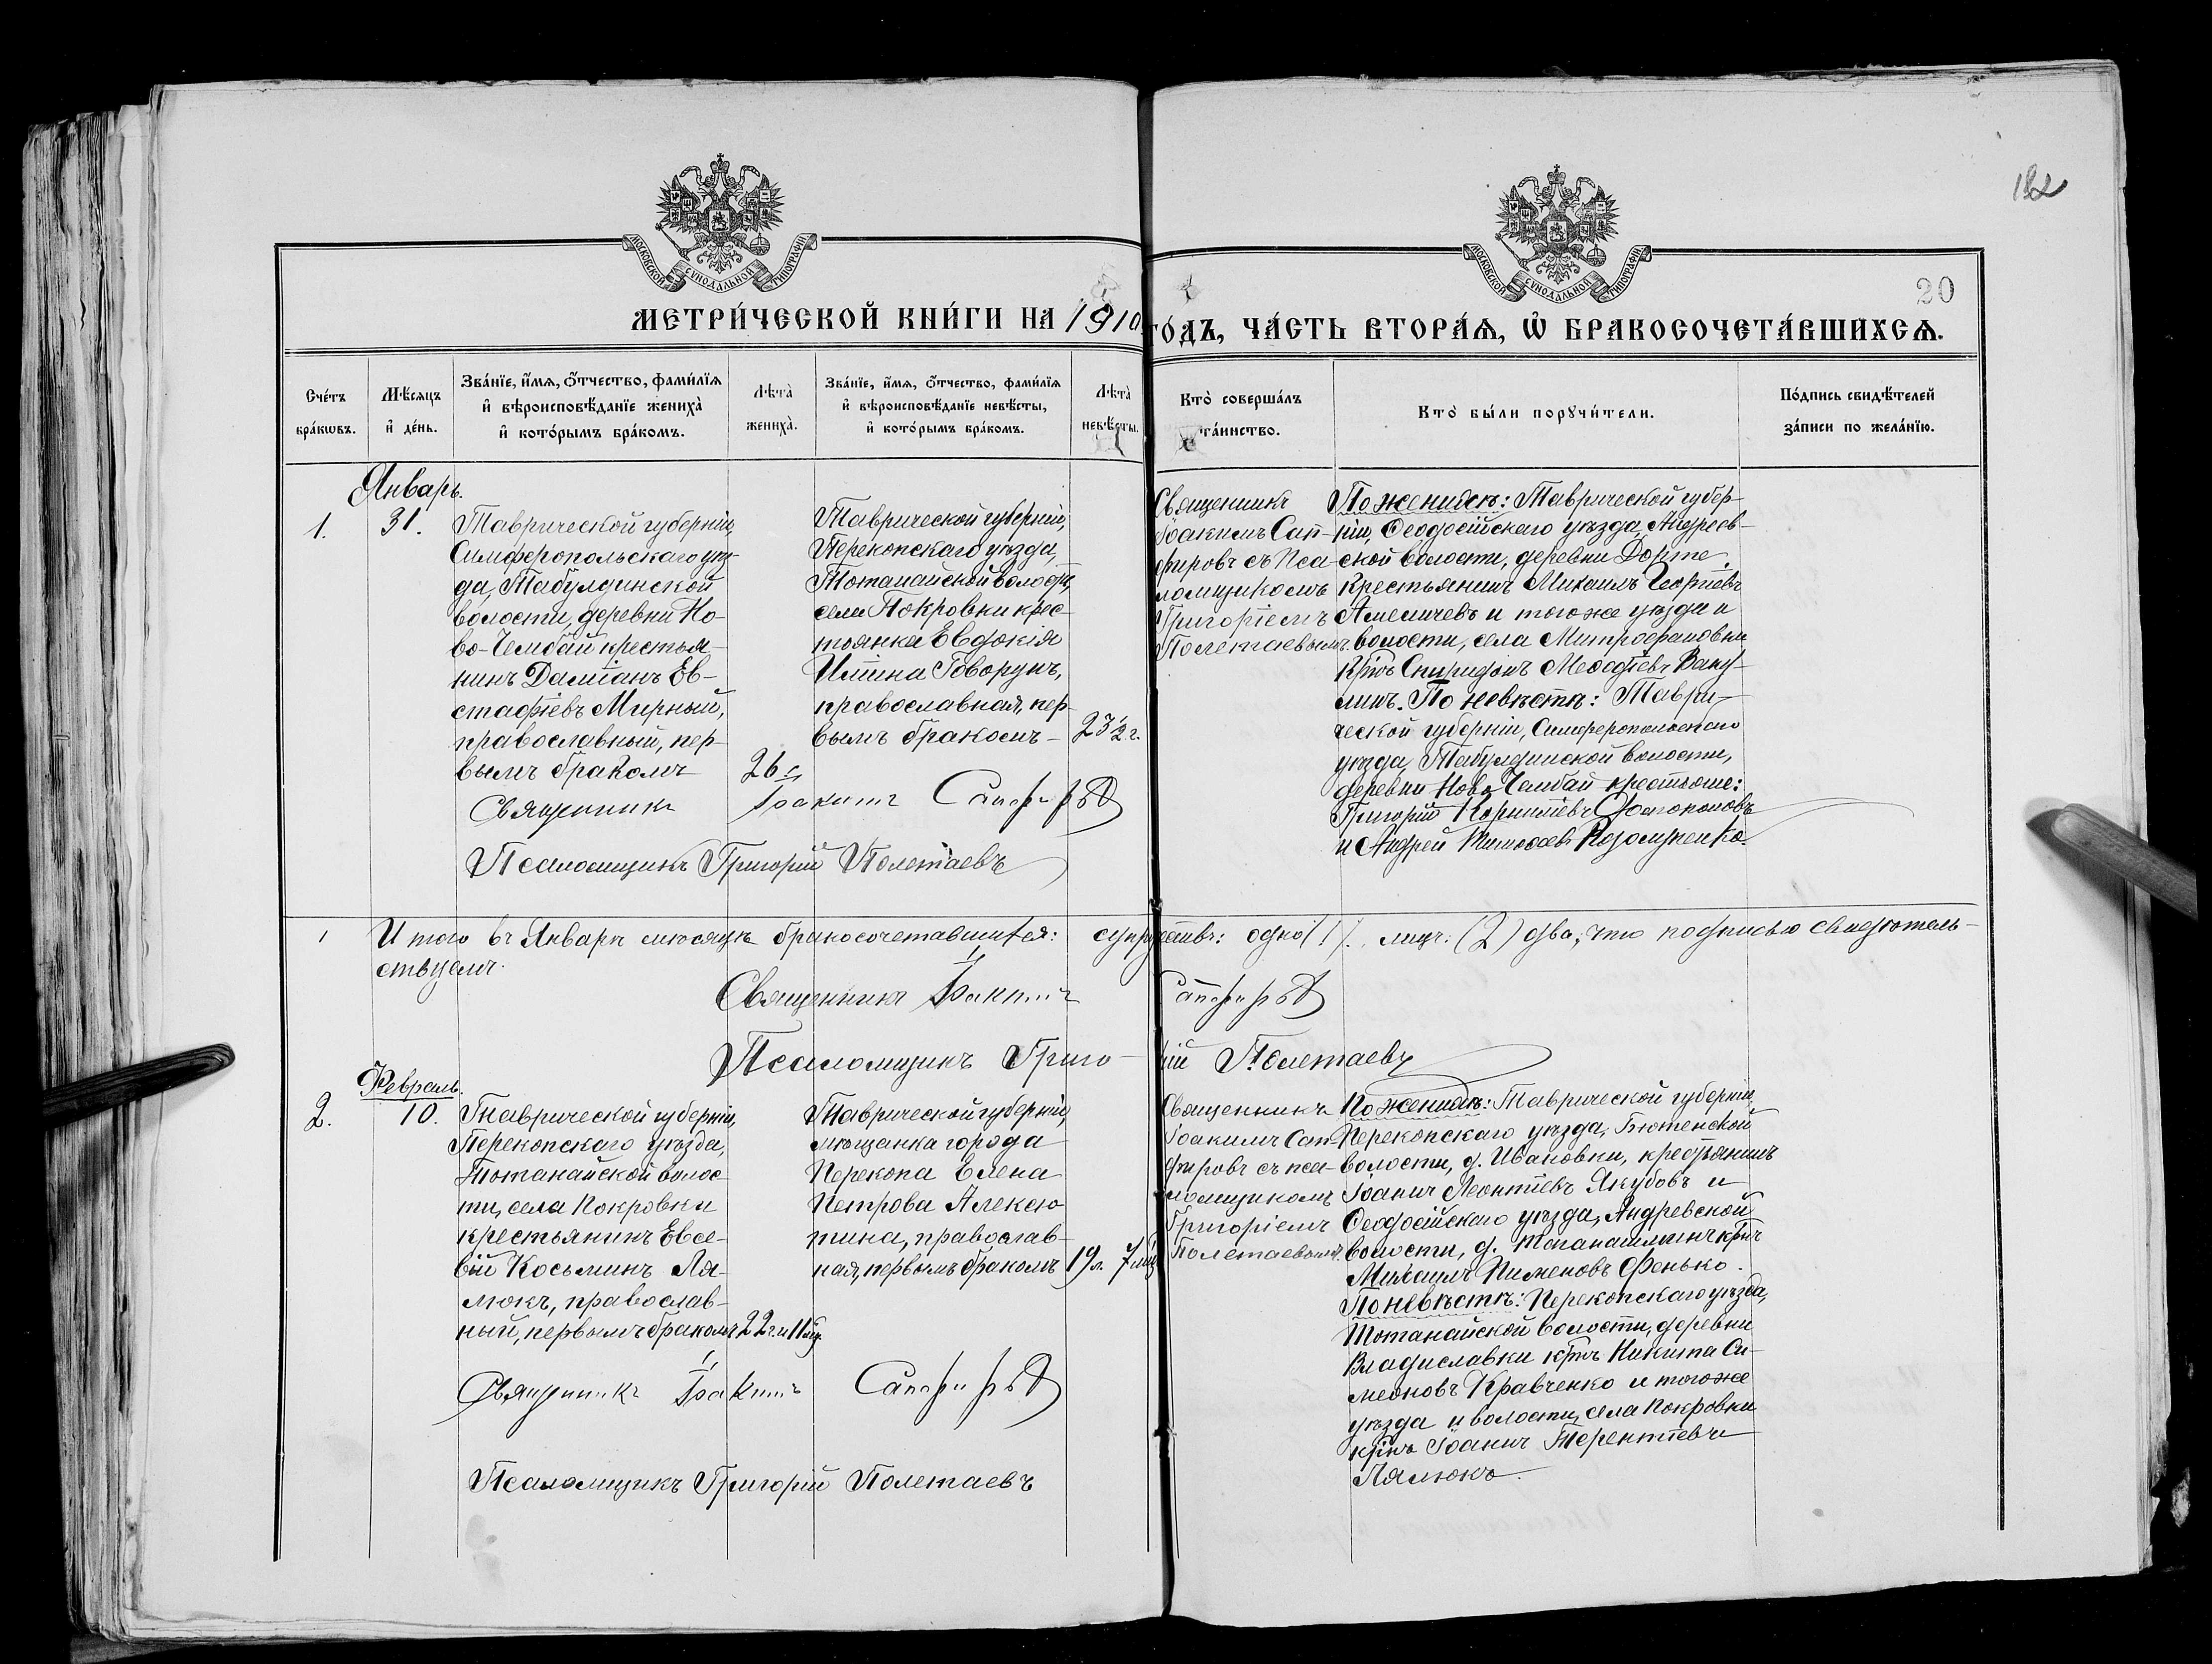 182
20
МОСКОВСКОЙ СѴНОДАЛЬНОЙ ТИПОГРАФІИ
МОСКОВСКОЙ СѴНОДАЛЬНОЙ ТИПОГРАФІИ
МЕТРИ́ЧЕСКОЙ КНИ́ГИ НА 1910
ГО́ДЪ, ЧА́СТЬ ВТОРА́Ѧ, Ѽ БРАКОСОЧЕТА́ВШИХСѦ.
Сче́тъ
бра́кѡвъ.
Мѣ́сяцъ
и҆ де́нь.
Зва́нїе, и҆́мѧ, ѻ҆́тчество, фами́лїѧ
и҆ вѣроисповѣ́данїе жениха̀
и҆ кото́рымъ бра́комъ.
Лѣта̀
жениха̀.
Зва́нїе, и҆́мѧ, ѻ҆́тчество, фами́лїѧ
и҆ вѣроисповѣ́данїе невѣ́сты,
и҆ кото́рымъ бра́комъ.
Лѣта̀
невѣ́сты.
Кто̀ соверша́лъ
та́инство.
Кто̀ бы́ли порꙋчи́тели.
По́дпись свидѣ́телей
за́писи по жела́нїю.
Январь.
1.
31.
Таврической губерніи,
Симферопольскаго уѣз-
да, Табулдинской
волости, деревни Но-
во-Чембай крестья-
нинъ Даміанъ Ев-
стафіевъ Мирный,
православный, пер-
вымъ бракомъ
26
Таврической губерніи,
Перекопскаго уѣзда,
Тотанайской волости,
села Покровки крес-
тьянка Евдокія
Говорунъ,
православная, пер-
вымъ бракомъ
23½ г.
Священникъ
Іоакимъ Сап-
фировъ съ пса-
ломщикомъ
Григоріемъ
Полетаевымъ.
По женихѣ: Таврической губер-
ніи, Ѳеодосійскаго уѣзда, Андреев-
ской волости, деревни Дорте
крестьянинъ Михаилъ Георгіевъ
Амеличевъ и того же уѣзда и
волости, села Митрофановки
кр̃нъ Спиридонъ Меѳодіевъ Ваку-
линъ. По невѣстѣ: Таври-
ческой губерніи, Симферопольскаго
уѣзда, Табулдинской волости,
деревни Ново Чембай крестьяне:
Григорій Корниліевъ
и Андрей
Священникъ Іоакимъ Сапфировъ
Псаломщикъ Григорій Полетаевъ
1
Итого въ Январѣ мѣсяцѣ бракосочетавшихся: супружествъ: одно (1). лицъ: (2) два, что подписью свидѣтель-
ствуемъ.
Священникъ Іоакимъ Сапфировъ
Псаломщикъ Григорій Полетаевъ
Февраль.
2.
10.
Таврической губерніи,
Перекопскаго уѣзда,
Тотанайской волос-
ти, села Покровки
крестьянинъ Евсе-
вій Косьминъ Ля-
люкъ, православ-
ный, первымъ бракомъ
22 г. и 11 мц.
Таврической губерніи,
мѣщанка города
Перекопа Елена
Петрова Алексю-
тина, православ-
ная, первымъ бракомъ
19 л. 7 мц
Священникъ
Іоакимъ Сап-
фировъ съ пса-
ломщикомъ
Григоріемъ
Полетаевымъ.
По женихѣ: Таврической губерніи,
Перекопскаго уѣзда, Бютенской
волости, д. Ивановки, крестьянинъ
Іоаннъ Леонтіевъ Якубовъ и
Ѳеодосійскаго уѣзда, Андреевской
волости, д. кр̃нъ
Михаилъ Пименовъ Фенько.
По невѣстѣ: Перекопскаго уѣзда,
Тотанайской волости, деревни
Владиславки кр̃нъ Никита Си-
меоновъ Кравченко и того же
уѣзда и волости, села Покровки
кр̃нъ Іоаннъ Терентіевъ
Лялюкъ.
Священникъ Іоакимъ Сапфировъ
Псаломщикъ Григорій Полетаевъ